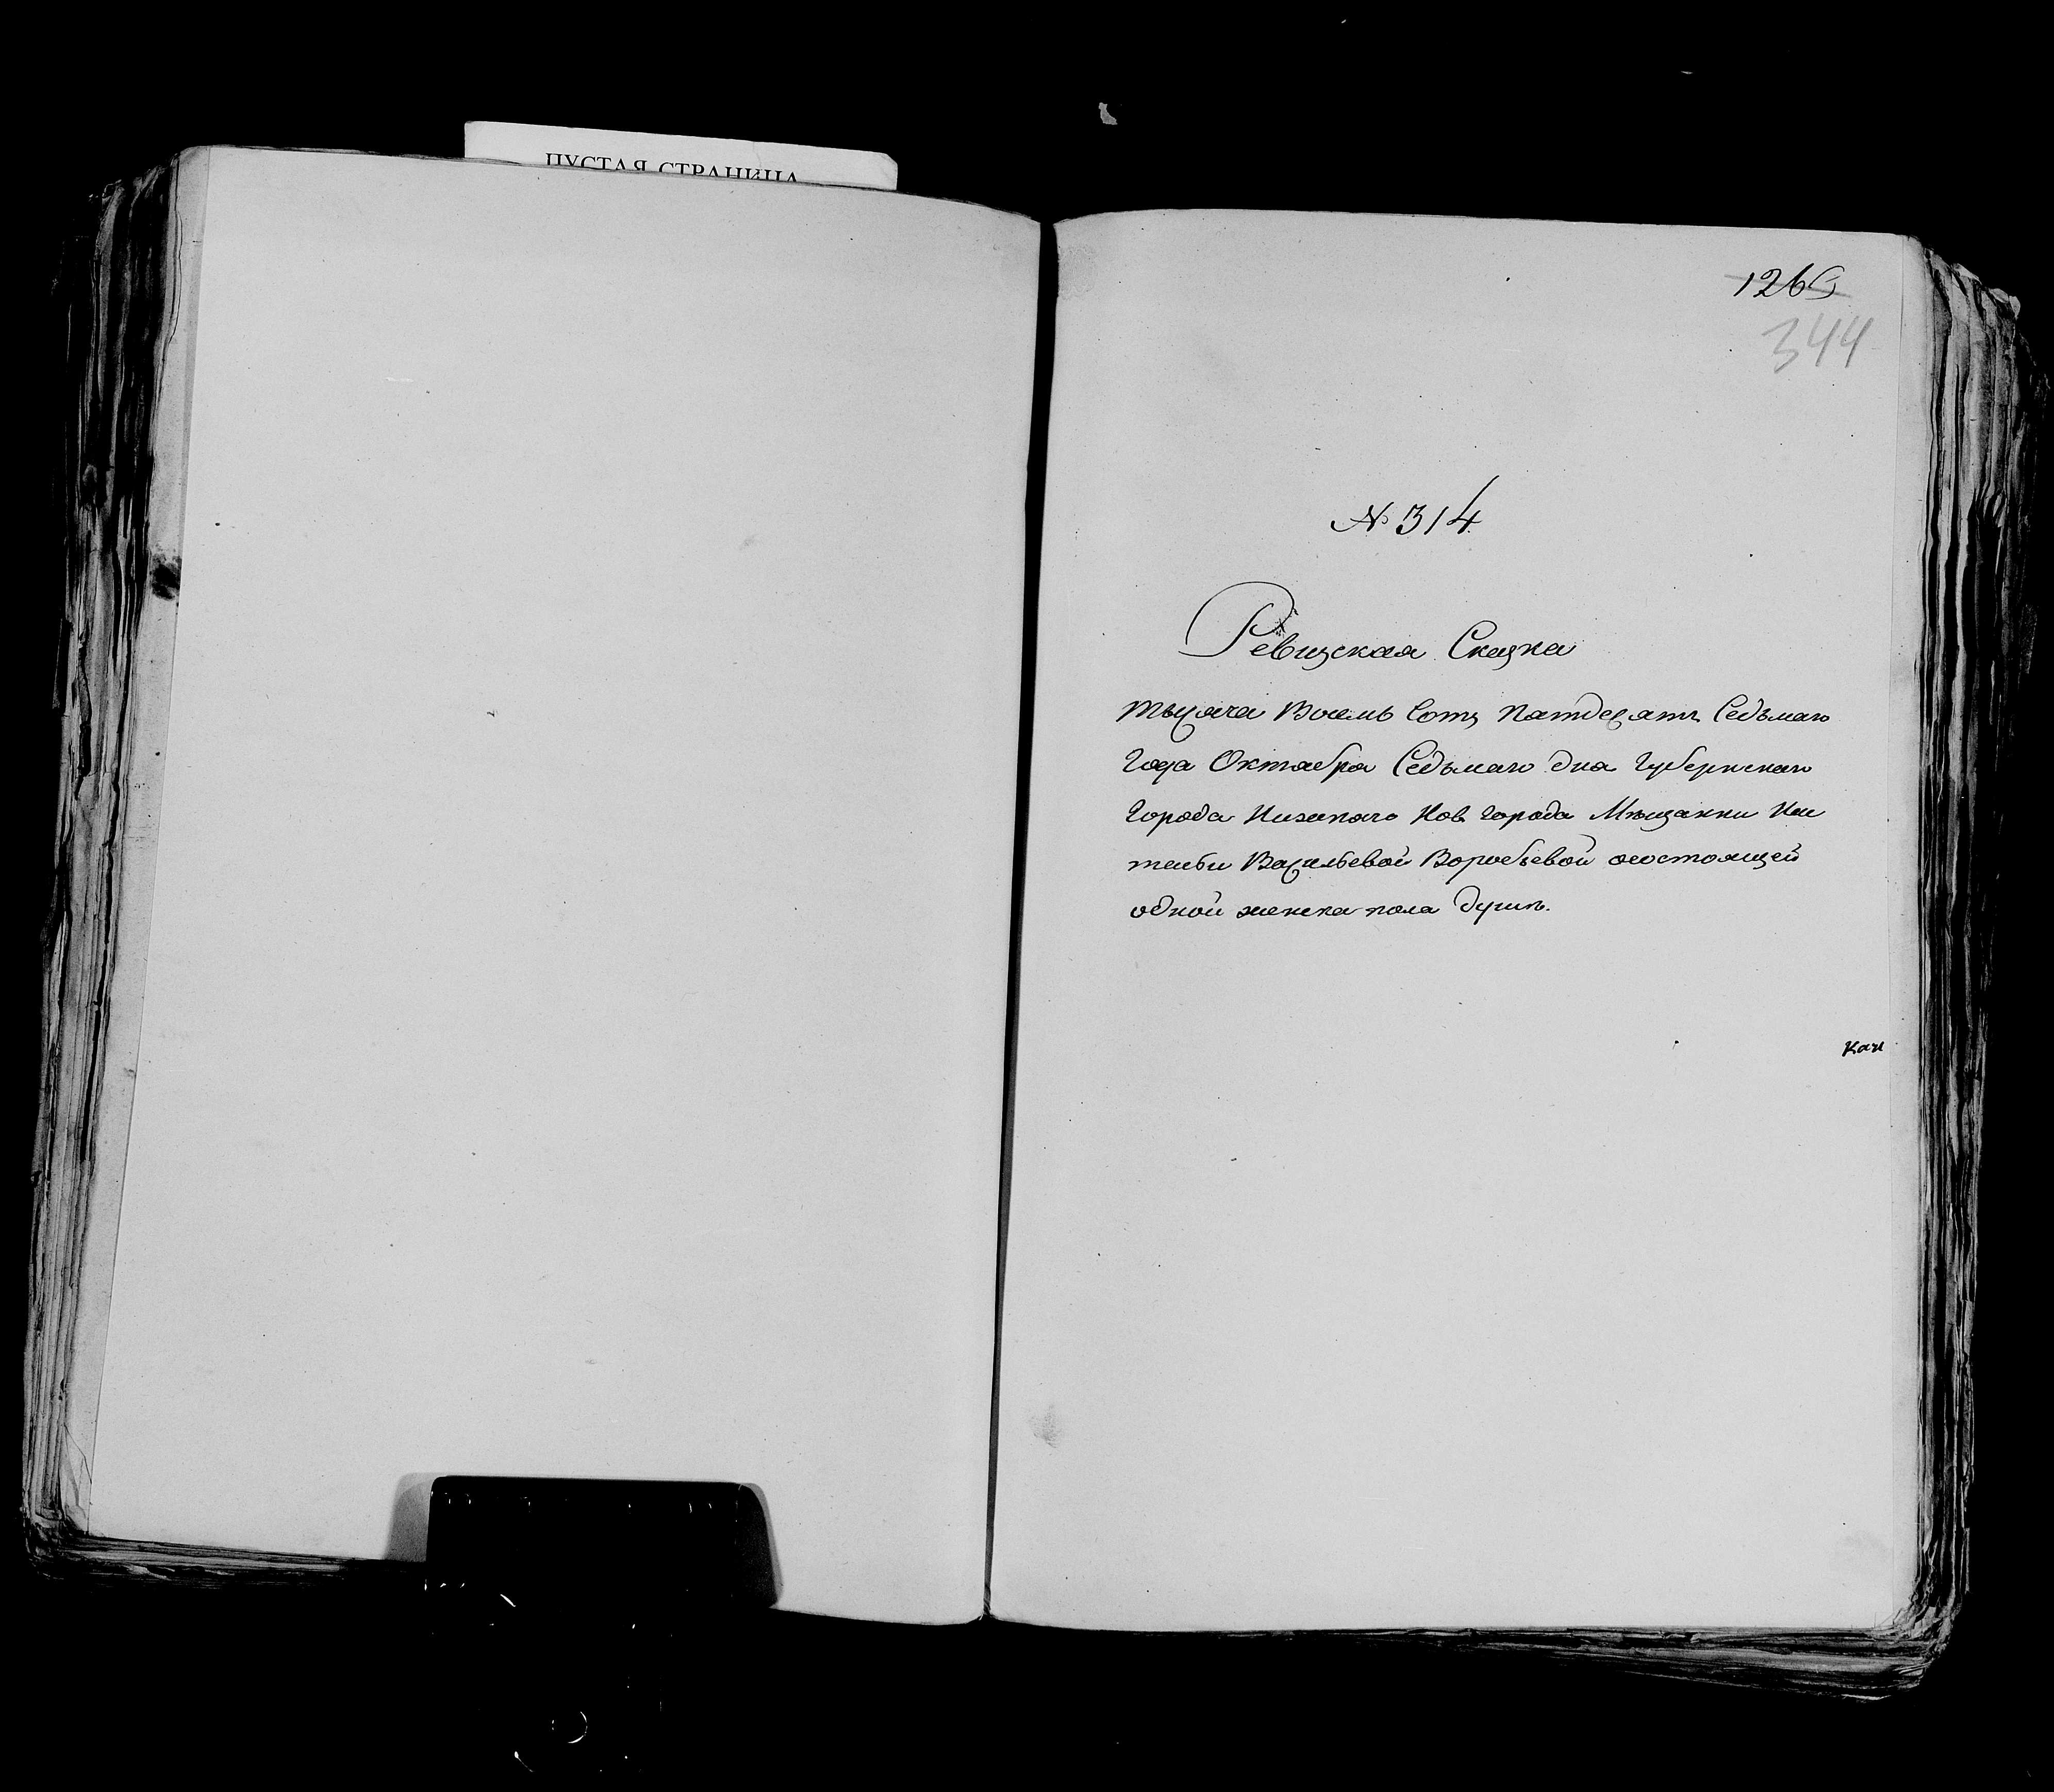 ПУСТАЯ СТРАНИЦА
1266
344
№ 314
Ревизская Сказка
тысяча Восемь Сотъ Пятдесятъ Седьмаго
Года Октября Седьмаго дня Губернскаго
Города Нижняго Нов города Мѣщанки
Васильевой Воробьевой состоящей
одной женска пола душѣ.